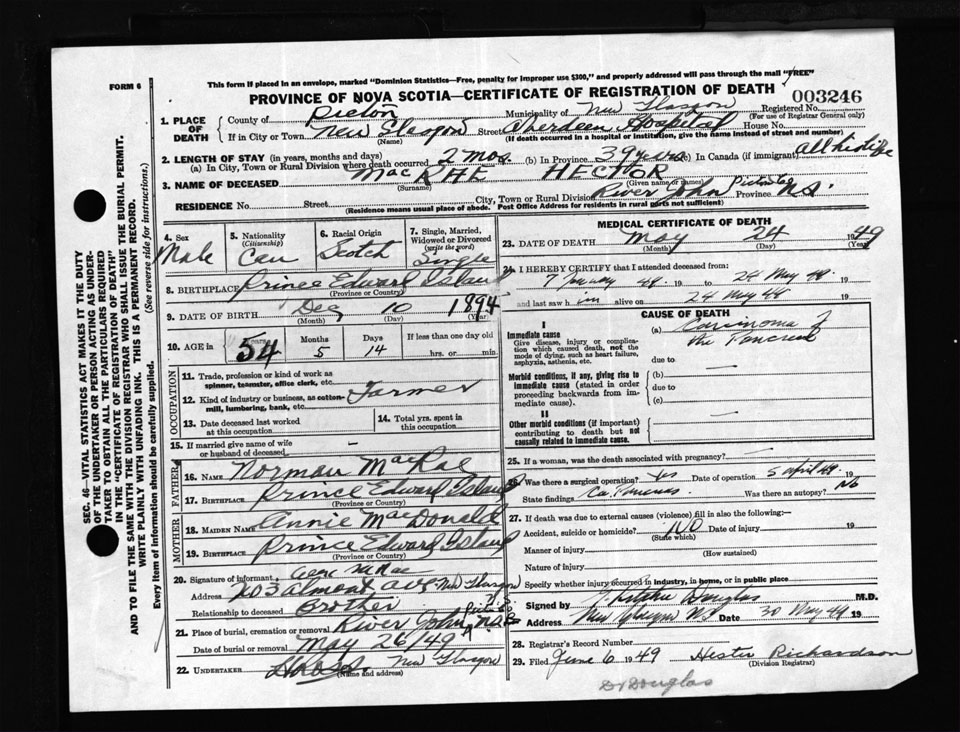 This form if placed in an envelope, marked "Dominion Statistics—Free, penalty for improper use $300," and properly addressed will pass through the mail "FREE"
FORM 6
PROVINCE OF NOVA SCOTIA—CERTIFICATE OF REGISTRATION OF DEATH
003246
1. PLACE OF DEATH
County of Pictou Municipality of New Glasgow Registered No.
(For use of Registrar General only)
If in City or Town New Glasgow Street Aberdeen Hospital House No.
(If death occurred in a hospital or institution, give the name instead of street and number)
2. LENGTH OF STAY (in years, months and days)
(a) In City, Town or Rural Division where death occurred 2 mos. (b) In Province 39 years (c) In Canada (if immigrant) all his life
3. NAME OF DECEASED MacRAE HECTOR
(Surname) (Given name or names)
RESIDENCE No. Street City, Town or Rural Division River John Pictou Co Province N.S.
(Residence means usual place of abode. Post Office Address for residents in rural parts not sufficient)
4. Sex Male
5. Nationality (Citizenship) Can
6. Racial Origin Scotch
7. Single, Married, Widowed or Divorced (write the word) Single
8. BIRTHPLACE Prince Edward Island
(Province or Country)
9. DATE OF BIRTH Dec 10 1894
(Month) (Day) (Year)
10. AGE in Years 54 Months 5 Days 14 If less than one day old hrs. or min.
OCCUPATION
11. Trade, profession or kind of work as spinner, teamster, office clerk, etc.
12. Kind of industry or business, as cotton-mill, lumbering, bank, etc. Farmer
13. Date deceased last worked at this occupation
14. Total yrs. spent in this occupation
15. If married give name of wife or husband of deceased
FATHER
16. NAME Norman MacRae
17. BIRTHPLACE Prince Edward Island
(Province or Country)
MOTHER
18. MAIDEN NAME Annie MacDonald
19. BIRTHPLACE Prince Edward Island
(Province or Country)
20. Signature of informant
Address Almont Ave New Glasgow
Relationship to deceased Brother
21. Place of burial, cremation or removal River John, Pictou Co N.S.
Date of burial or removal May 26/49
22. UNDERTAKER New Glasgow
(Name and address)
MEDICAL CERTIFICATE OF DEATH
23. DATE OF DEATH May 24 1949
(Month) (Day) (Year)
24. I HEREBY CERTIFY that I attended deceased from:
7 January 49 19 to 24 May 49 19
and last saw him alive on 24 May 49 19
CAUSE OF DEATH
I
Immediate cause
Give disease, injury or complication which caused death, not the mode of dying, such as heart failure, asphyxia, asthenia, etc.
(a) Carcinoma of the Pancreas
due to
Morbid conditions, if any, giving rise to immediate cause (stated in order proceeding backwards from immediate cause).
(b) —
due to
(c)
II
Other morbid conditions (if important) contributing to death but not causally related to immediate cause.
25. If a woman, was the death associated with pregnancy?
26. Was there a surgical operation? Yes Date of operation 5 April 49 19
State findings Ca. Pancreas Was there an autopsy? No
27. If death was due to external causes (violence) fill in also the following:—
Accident, suicide or homicide? NO Date of injury 19
(State which)
Manner of injury
(How sustained)
Nature of injury
Specify whether injury occurred in industry, in home, or in public place
Signed by Douglas M.D.
Address New Glasgow NS Date 30 May 49 19
28. Registrar's Record Number
29. Filed June 6 1949 Hester Richardson
(Division Registrar)
Dr Douglas
SEC. 46—VITAL STATISTICS ACT MAKES IT THE DUTY
OF THE UNDERTAKER OR PERSON ACTING AS UNDERTAKER TO OBTAIN ALL THE PARTICULARS REQUIRED
IN THE "CERTIFICATE OF REGISTRATION OF DEATH"
AND TO FILE THE SAME WITH THE DIVISION REGISTRAR WHO SHALL ISSUE THE BURIAL PERMIT.
WRITE PLAINLY WITH UNFADING INK. THIS IS A PERMANENT RECORD.
Every item of information should be carefully supplied. (See reverse side for instructions.)